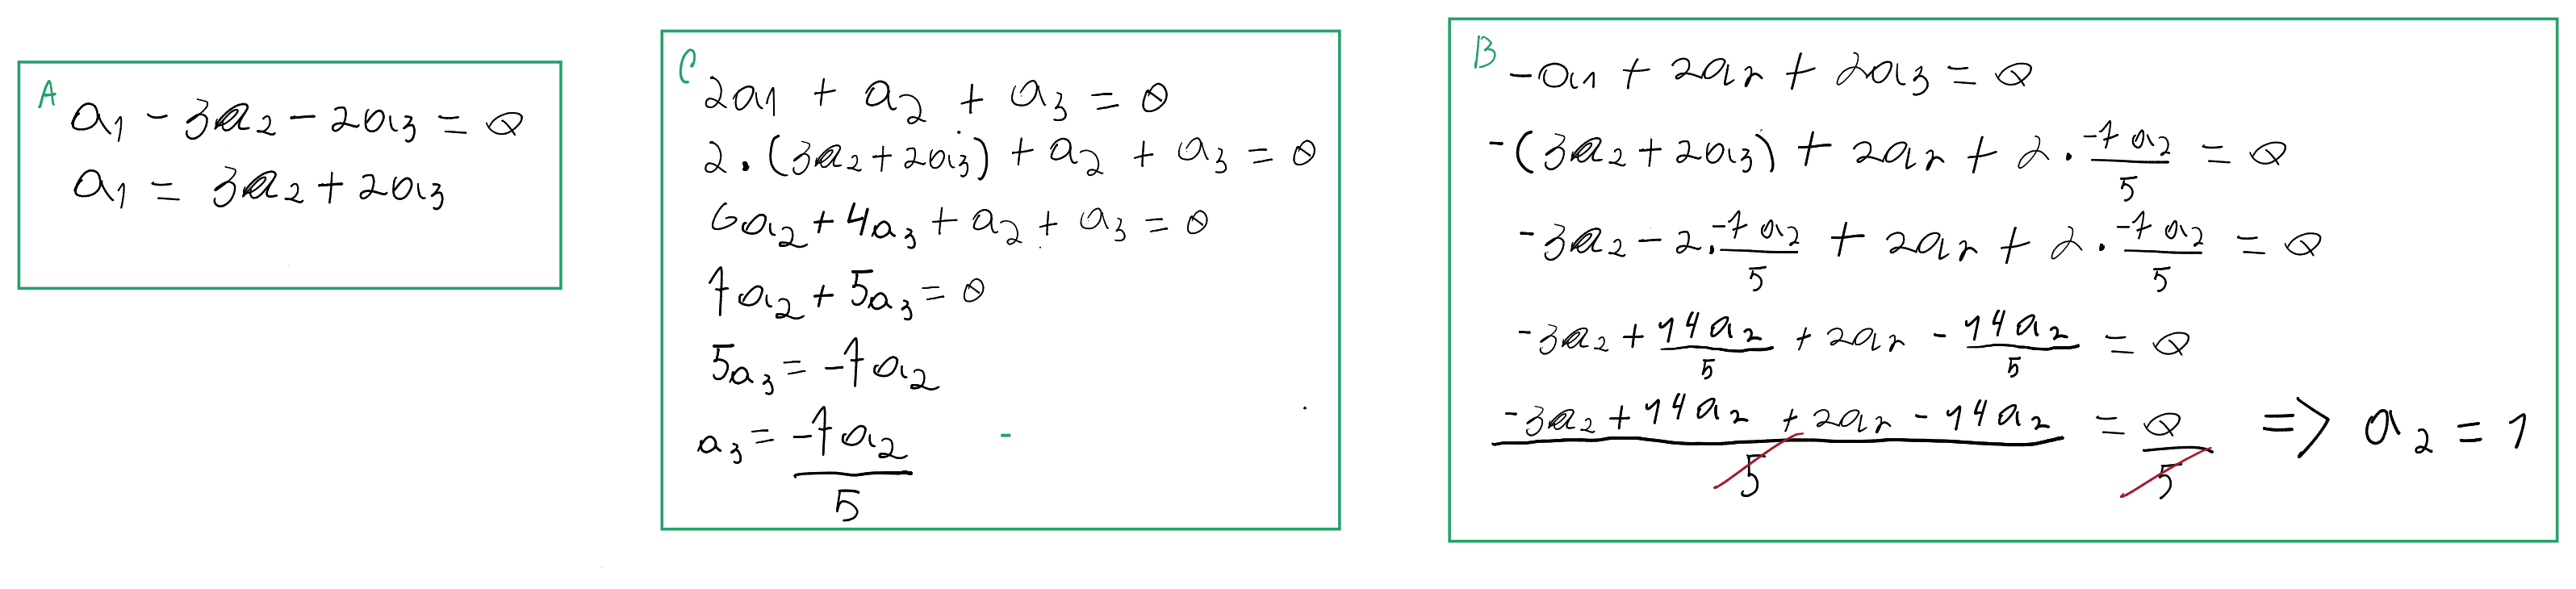 A
a₁ - 3a₂ - 2a₃ = 0
a₁ = 3a₂ + 2a₃
C
2a₁ + a₂ + a₃ = 0
2 · (3a₂ + 2a₃) + a₂ + a₃ = 0
6a₂ + 4a₃ + a₂ + a₃ = 0
7a₂ + 5a₃ = 0
5a₃ = -7a₂
a₃ = -7a₂/5
B
-a₁ + 2a₂ + 2a₃ = 0
-(3a₂ + 2a₃) + 2a₂ + 2 · -7a₂/5 = 0
-3a₂ - 2 · -7a₂/5 + 2a₂ + 2 · -7a₂/5 = 0
-3a₂ + 14a₂/5 + 2a₂ - 14a₂/5 = 0
(-3a₂ + 14a₂ + 2a₂ - 14a₂)/5 = 0/5 => a₂ = 1